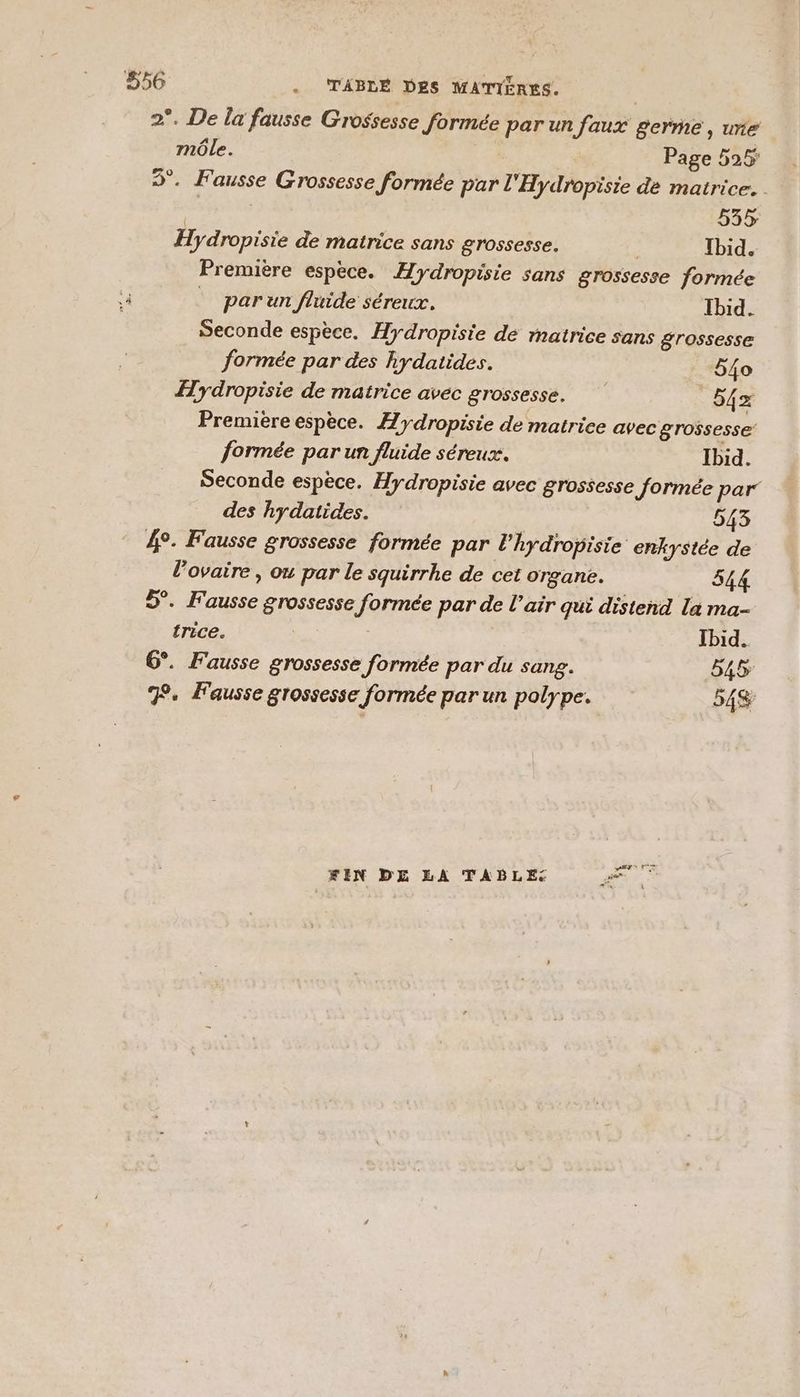 556 . TABLE DES MATIÈRES.
2°. De la fausse Grossesse formée par un faux germe, une
môle. Page 525
3°. Fausse Grossesse formée par l'Hydropisie de matrice.
535
Hydropisie de matrice sans grossesse. Ibid.
Première espèce. Hydropisie sans grossesse formée
par un fluide séreux. Ibid.
Seconde espèce. Hydropisie de matrice sans grossesse
formée par des hydatides. 540
Hydropisie de matrice avec grossesse. 542
Première espèce. Hydropisie de matrice avec grossesse
formée par un fluide séreux. Ibid.
Seconde espèce. Hydropisie avec grossesse formée par
des hydatides. 543
4°. Fausse grossesse formée par l'hydropisie enkystée de
l'ovaire, ou par le squirrhe de cet organe. 544
5°. Fausse grossesse formée par de l'air qui distend la ma-
trice. Ibid.
6°. Fausse grossesse formée par du sang. 545
7°. Fausse grossesse formée par un polype. 548
FIN DE LA TABLE.